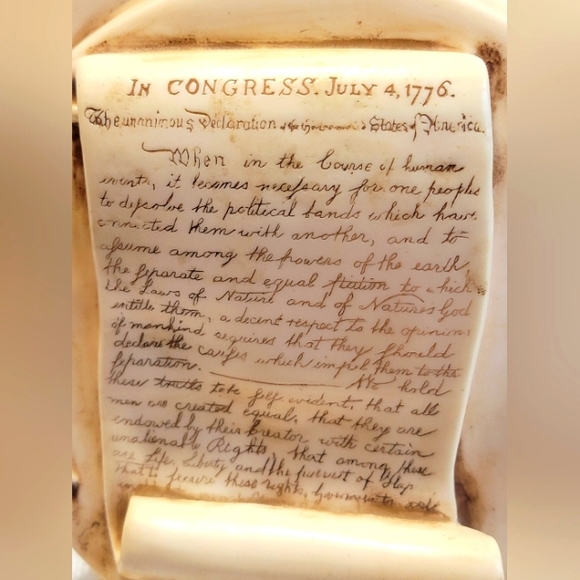 IN CONGRESS. JULY 4, 1776.
The unanimous Declaration of the thirteen States of America.
When in the Course of human
events, it becomes necefsary for one peoples
to difsolve the political bands which have
connected them with another, and to
afsume among the powers of the earth,
the feparate and equal ftation to which
the Laws of Nature and of Natures God
entitle them, a decent respect to the opinions
of mankind requires that they fhould
declare the caufes which impel them to the
feparation. We hold
these truths to be felf evident, that all
men are created equal, that they are
endowed by their Creator with certain
unalienable Rights, that among these
are Life, Liberty and the pursuit of Hap
that to fecure these rights, Governments